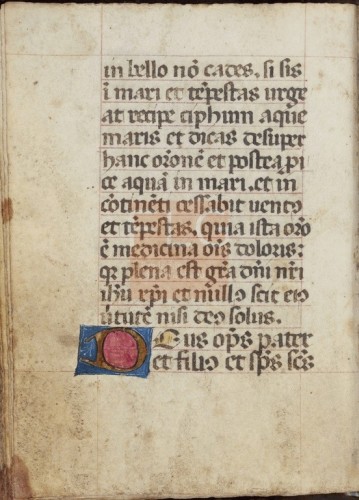 in bello nō cades. si sis
ī mari et tēpestas urge
at recipe ciphum aque
maris et dicas desuper
hanc orōnē et postea pi
ce aquā in mari. et in
cōtinēti cessabit uento
et tēpestas. quia ista orō
ē medicina oīs doloris:
qr plena est grā dnī nrī
ihū xpī et nullo scit eiꝰ
ūtutē nisi deo solus.
Deus opīs pater
et filio et spūs scūs